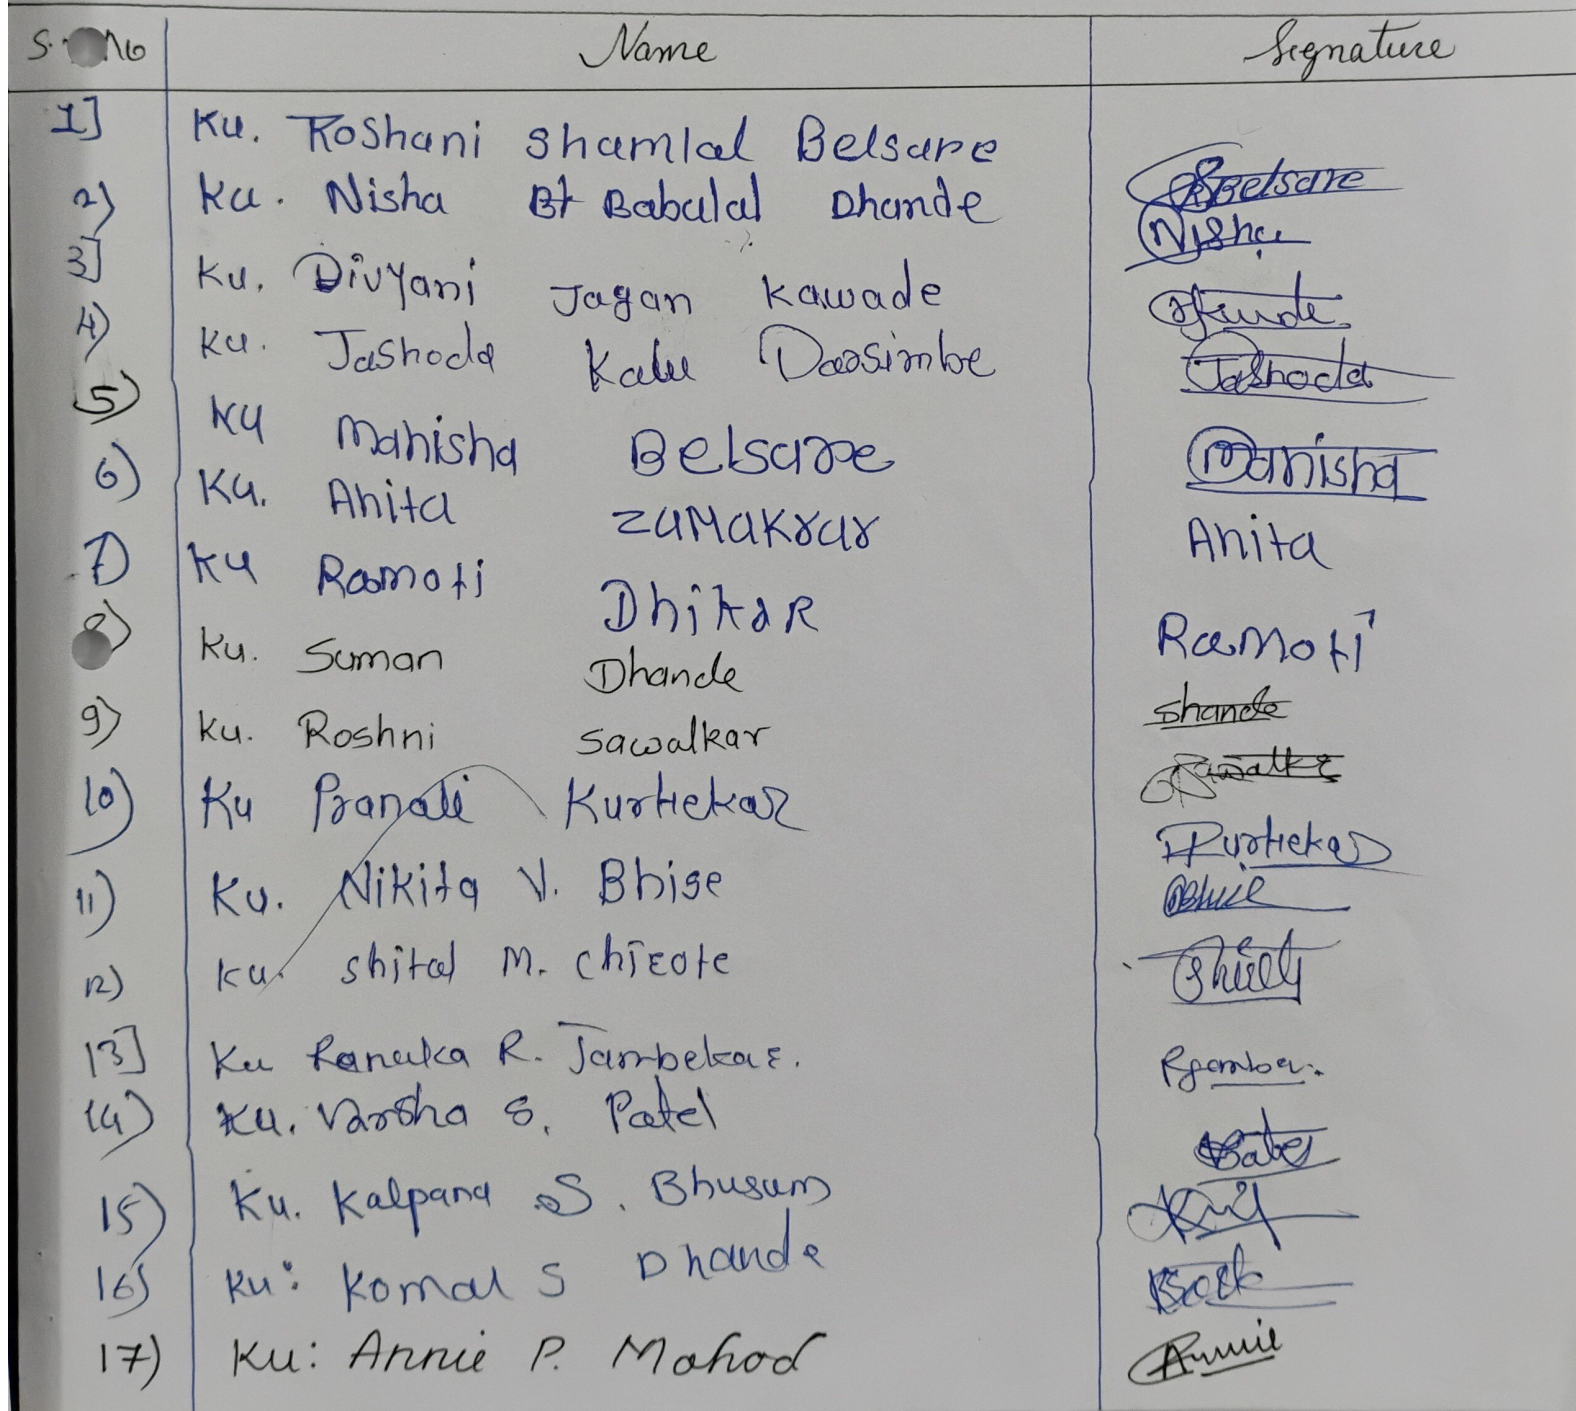 S. No Name Signature
1] Ku. Roshani Shamlal Belsare Belsare
2) Ku. Nisha Bt Babulal Dhande Nisha
3] Ku. Divyani Jagan Kawade
4) Ku. Jashoda Kalu Darsimbe Jashoda
5) Ku Manisha Belsare Manisha
6) Ku. Anita ZAMAKrar Anita
7) Ku Ramoti Dhikar Ramoti
8) Ku. Suman Dhande Dhande
9) Ku. Roshni Sawalkar
10) Ku Pranali Kurtiekar Kurtiekar
11) Ku. Nikita V. Bhise
12) Ku. Shital M. Chirote
13] Ku Ranuka R. Jambekar.
14) Ku. Varsha S. Patel
15) Ku. Kalpana S. Bhusum
16) Ku: Komal S Dhande
17) Ku: Annie P. Mahod Annie